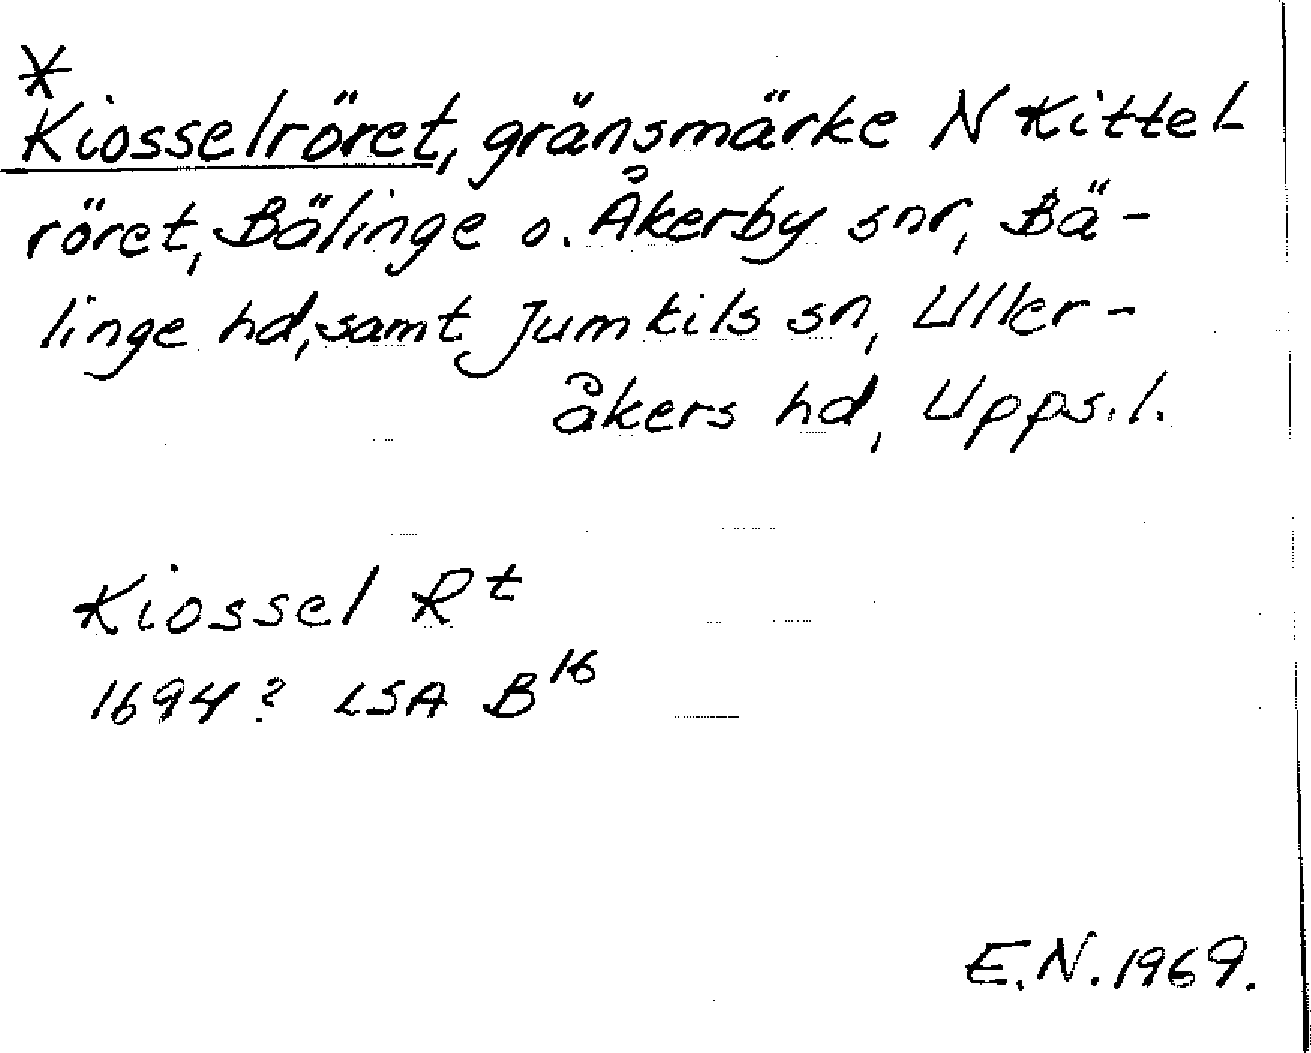 *
Kiosselröret, gränsmärke N Kittel-
röret, Bälinge o. Åkerby snr, Bä-
linge hd, samt Jumkils sn, Uller-
åkers hd, Upps.l.
Kiossel Rt
1694? LSA B16
E.N. 1969.